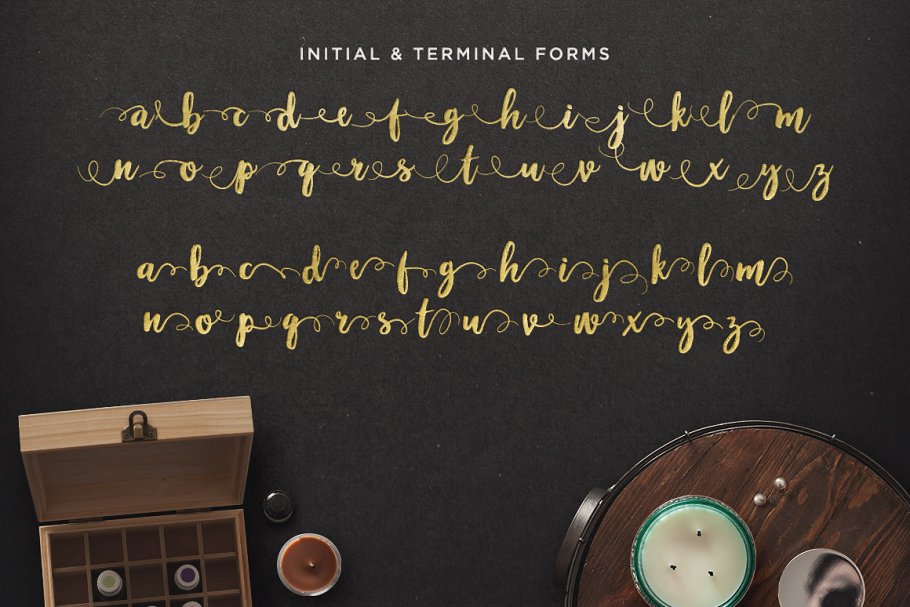 INITIAL & TERMINAL FORMS
abcdefghijklm
nopqrstuvwxyz
abcdefghijklm
nopqrstuvwxyz